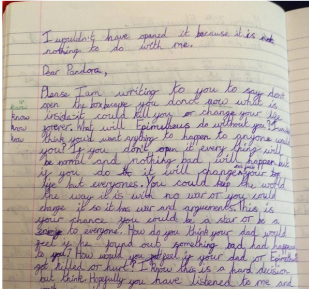 I wouldn't have opened it because it is not
nothing to do with me.
Dear Pandora,
Please I am writing to you to say dont
open the box because you donot now what is
know inside it could kill you or change your life
know forever. What will Epimetheus do without you?
know think you'd want anything to happen to anyone would
you? If you don't open it every thing will
be normal and nothing bad will happen but
if you do it will change your
life but everyones. You could keep the world
the way it is with no war or you could
change it so it has war and arguements. This is
your chance you could be a star or be a
to everyone. How do you think your dad would
feel if he found out something bad had happened
to you? How would you feel if your dad or Epimetheus
got killed or hurt? I know this is a hard decision
but think Hopefully you have listened to me and